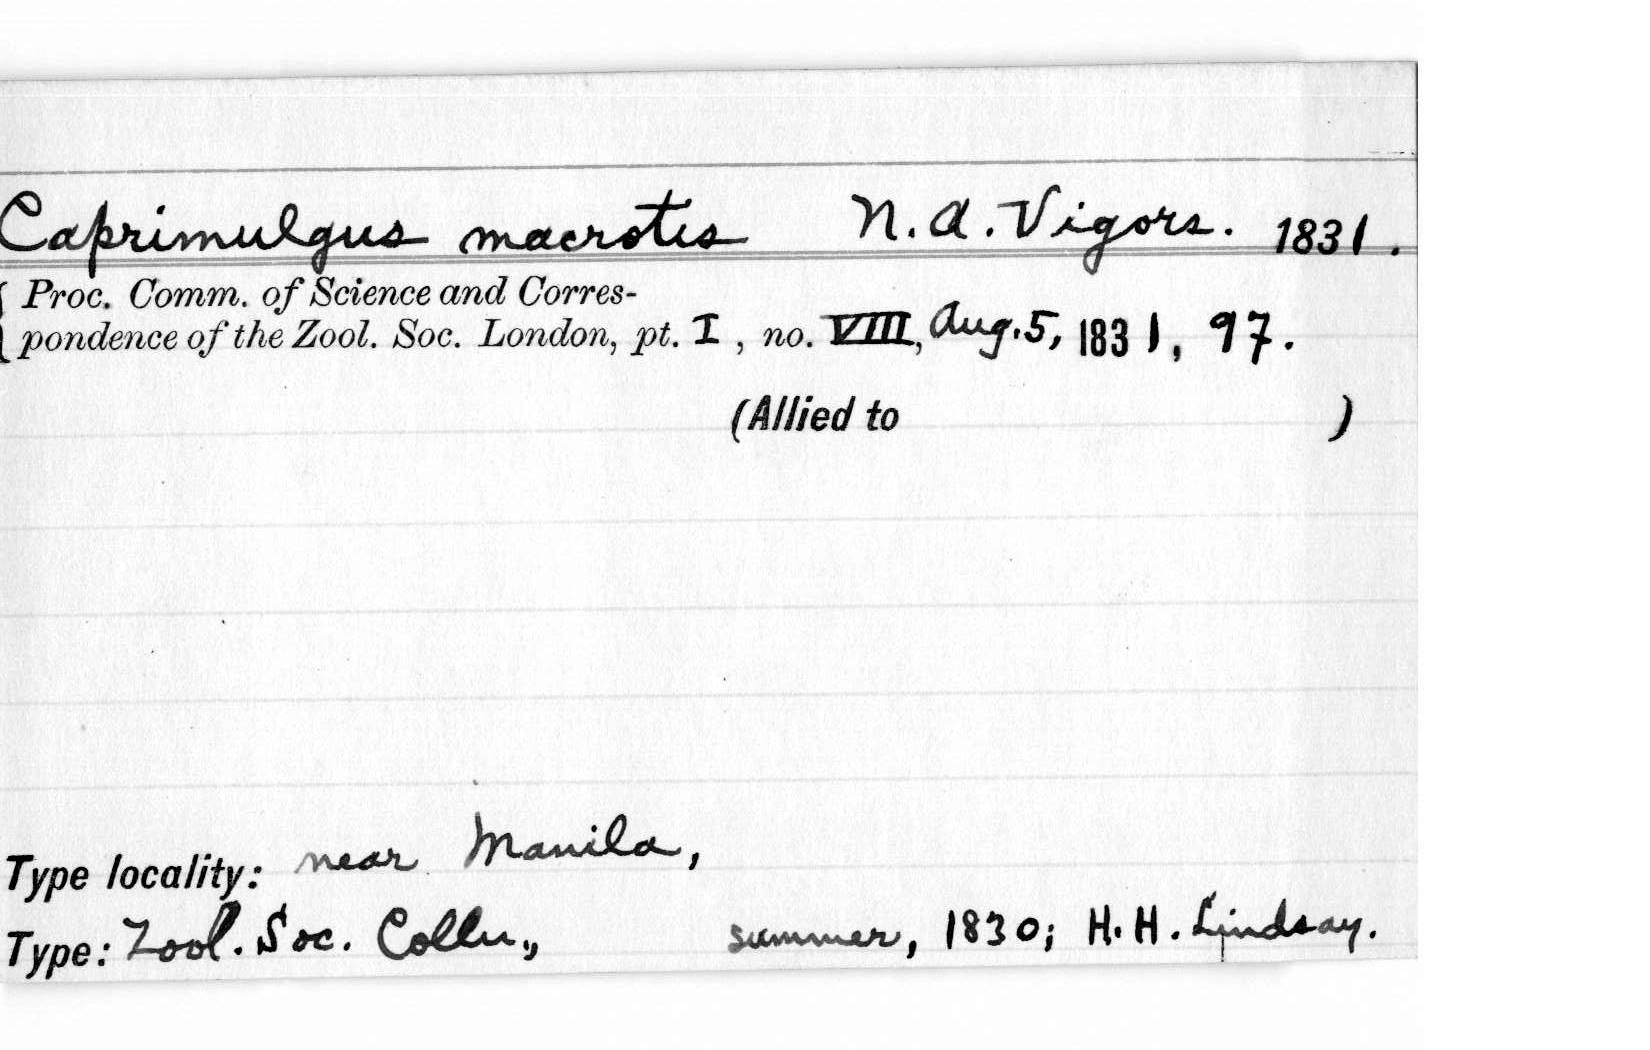 Caprimulgus macrotis N. A. Vigors. 1831.
Proc. Comm. of Science and Corres-
pondence of the Zool. Soc. London, pt. I, no. VIII, Aug. 5, 1831, 97.
(Allied to )
Type locality: near Manila,
Type: Zool. Soc. Colln., summer, 1830; H. H. Lindsay.